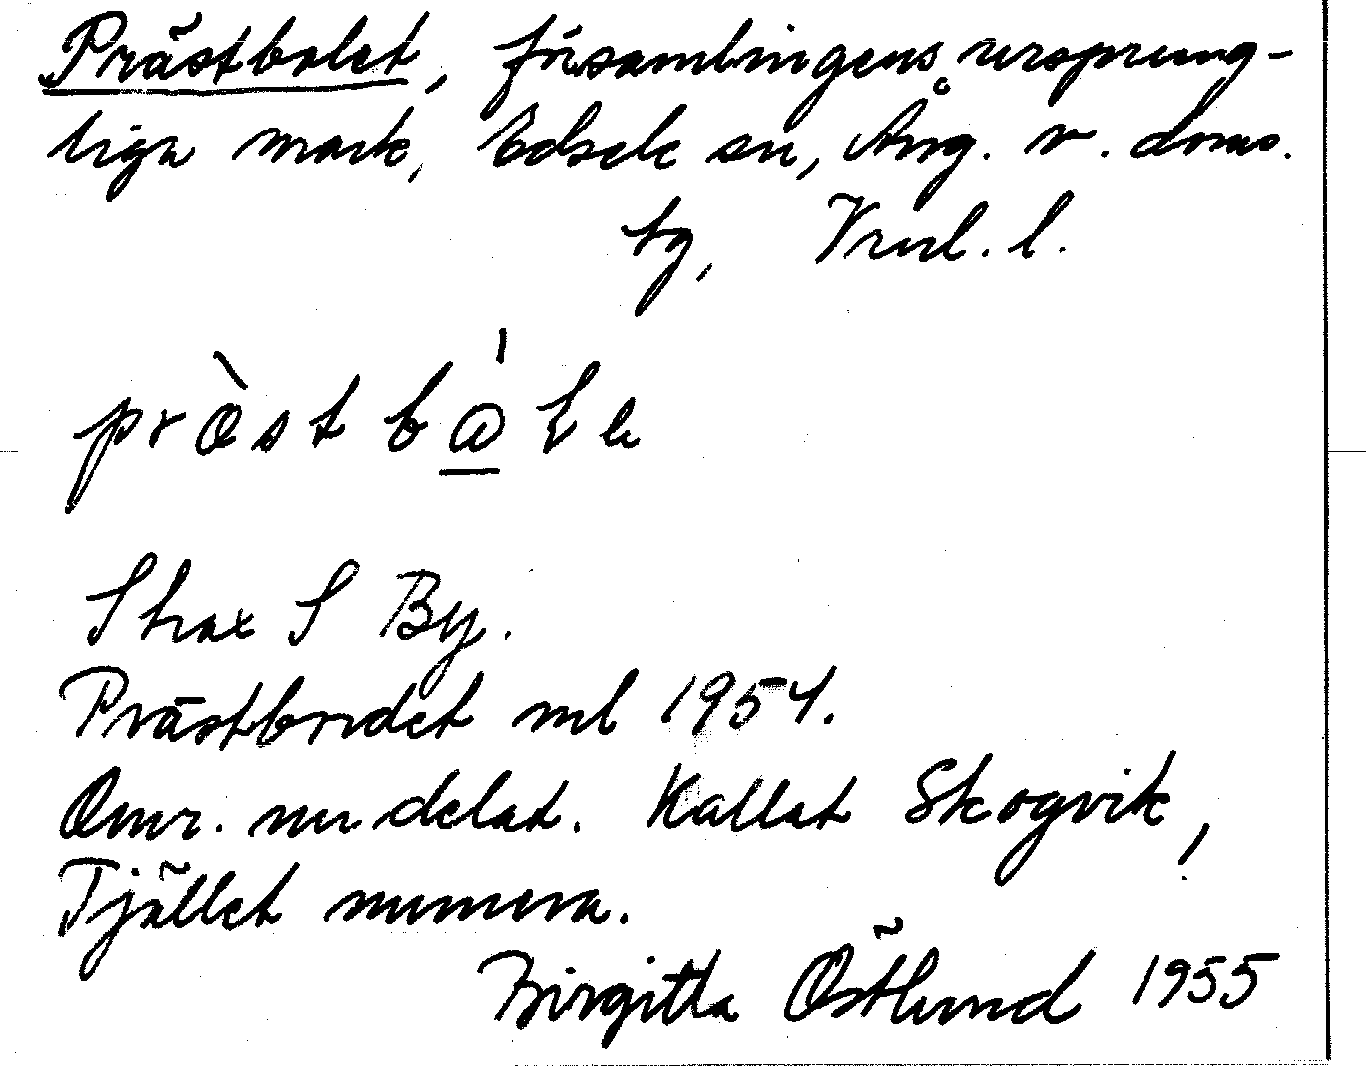 Prästbolet, församlingens ursprung-
liga mark, Edsele sn, Ång. v. doms.
tg, Vnrl. l.
pròstbåLe
Strax S By.
Prästbordet ml 1954.
Omr. nu delat. Kallat Skogvik,
Tjället numera.
Birgitta Östlund 1955